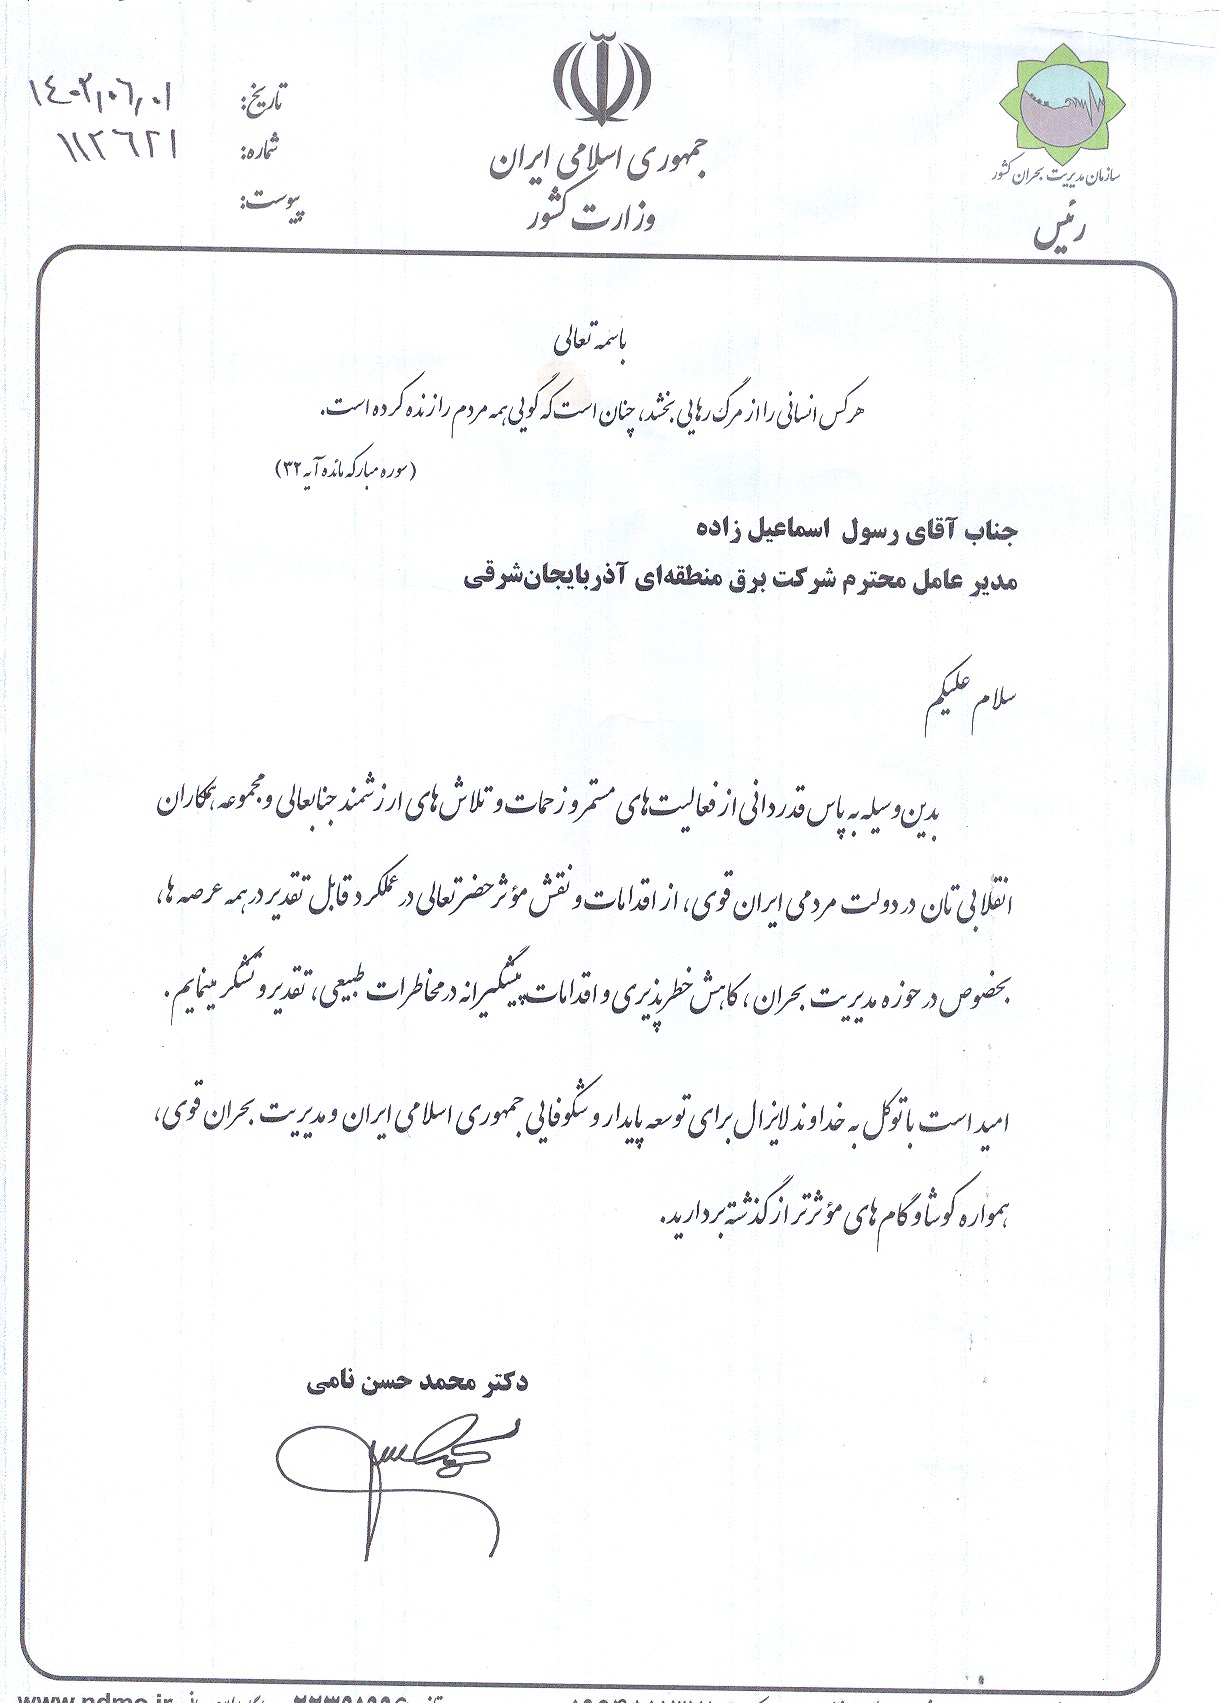 جمهوری اسلامی ایران
وزارت کشور
سازمان مدیریت بحران کشور
رئیس
تاریخ: ۱۴۰۳/۰۶/۰۱
شماره: ۱۱۲۶۲۱
پیوست:
باسمه تعالی
هرکس انسانی را از مرگ رهایی بخشد، چنان است که گویی همه مردم را زنده کرده است.
(سوره مبارکه مائده آیه ۳۲)
جناب آقای رسول اسماعیل زاده
مدیر عامل محترم شرکت برق منطقه‌ای آذربایجان‌شرقی
سلام علیکم
بدین وسیله به پاس قدردانی از فعالیت‌های مستمر و زحمات و تلاش‌های ارزشمند جنابعالی و مجموعه همکاران
انقلابی تان در دولت مردمی ایران قوی، از اقدامات و نقش مؤثر حضرتعالی در عملکرد قابل تقدیر در همه عرصه ها،
بخصوص در حوزه مدیریت بحران، کاهش خطرپذیری و اقدامات پیشگیرانه در مخاطرات طبیعی، تقدیر و تشکر مینمایم.
امید است با توکل به خداوند لایزال برای توسعه پایدار و شکوفایی جمهوری اسلامی ایران و مدیریت بحران قوی،
همواره کوشا و گام های مؤثرتر از گذشته بردارید.
دکتر محمد حسن نامی
www.ndmo.ir